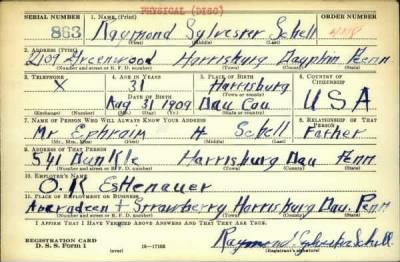 PHYSICAL (DISC)
SERIAL NUMBER 1. NAME (Print) ORDER NUMBER
863 Raymond Sylvester Schell
(First) (Middle) (Last)
2. ADDRESS (Print)
2109 Greenwood Harrisburg Dauphin Penn
(Number and street or R. F. D. number) (Town) (County) (State)
3. TELEPHONE 4. AGE IN YEARS 5. PLACE OF BIRTH 6. COUNTRY OF CITIZENSHIP
X 31 Harrisburg
DATE OF BIRTH (Town or county)
Aug 31 1909 Dau Cou USA
(Exchange) (Number) (Mo.) (Day) (Yr.) (State or country)
7. NAME OF PERSON WHO WILL ALWAYS KNOW YOUR ADDRESS 8. RELATIONSHIP OF THAT PERSON
Mr Ephraim H Schell Father
(Mr., Mrs., Miss) (First) (Middle) (Last)
9. ADDRESS OF THAT PERSON
541 Dunkle Harrisburg Dau Penn
(Number and street or R. F. D. number) (Town) (County) (State)
10. EMPLOYER'S NAME
O. K Eshenauer
11. PLACE OF EMPLOYMENT OR BUSINESS
Aberadeen + Strawberry Harrisburg Dau. Penn
(Number and street or R. F. D. number) (Town) (County) (State)
I AFFIRM THAT I HAVE VERIFIED ABOVE ANSWERS AND THAT THEY ARE TRUE.
REGISTRATION CARD
D. S. S. Form 1 (over) 16—17105 Raymond Sylvester Schell
(Registrant's signature)